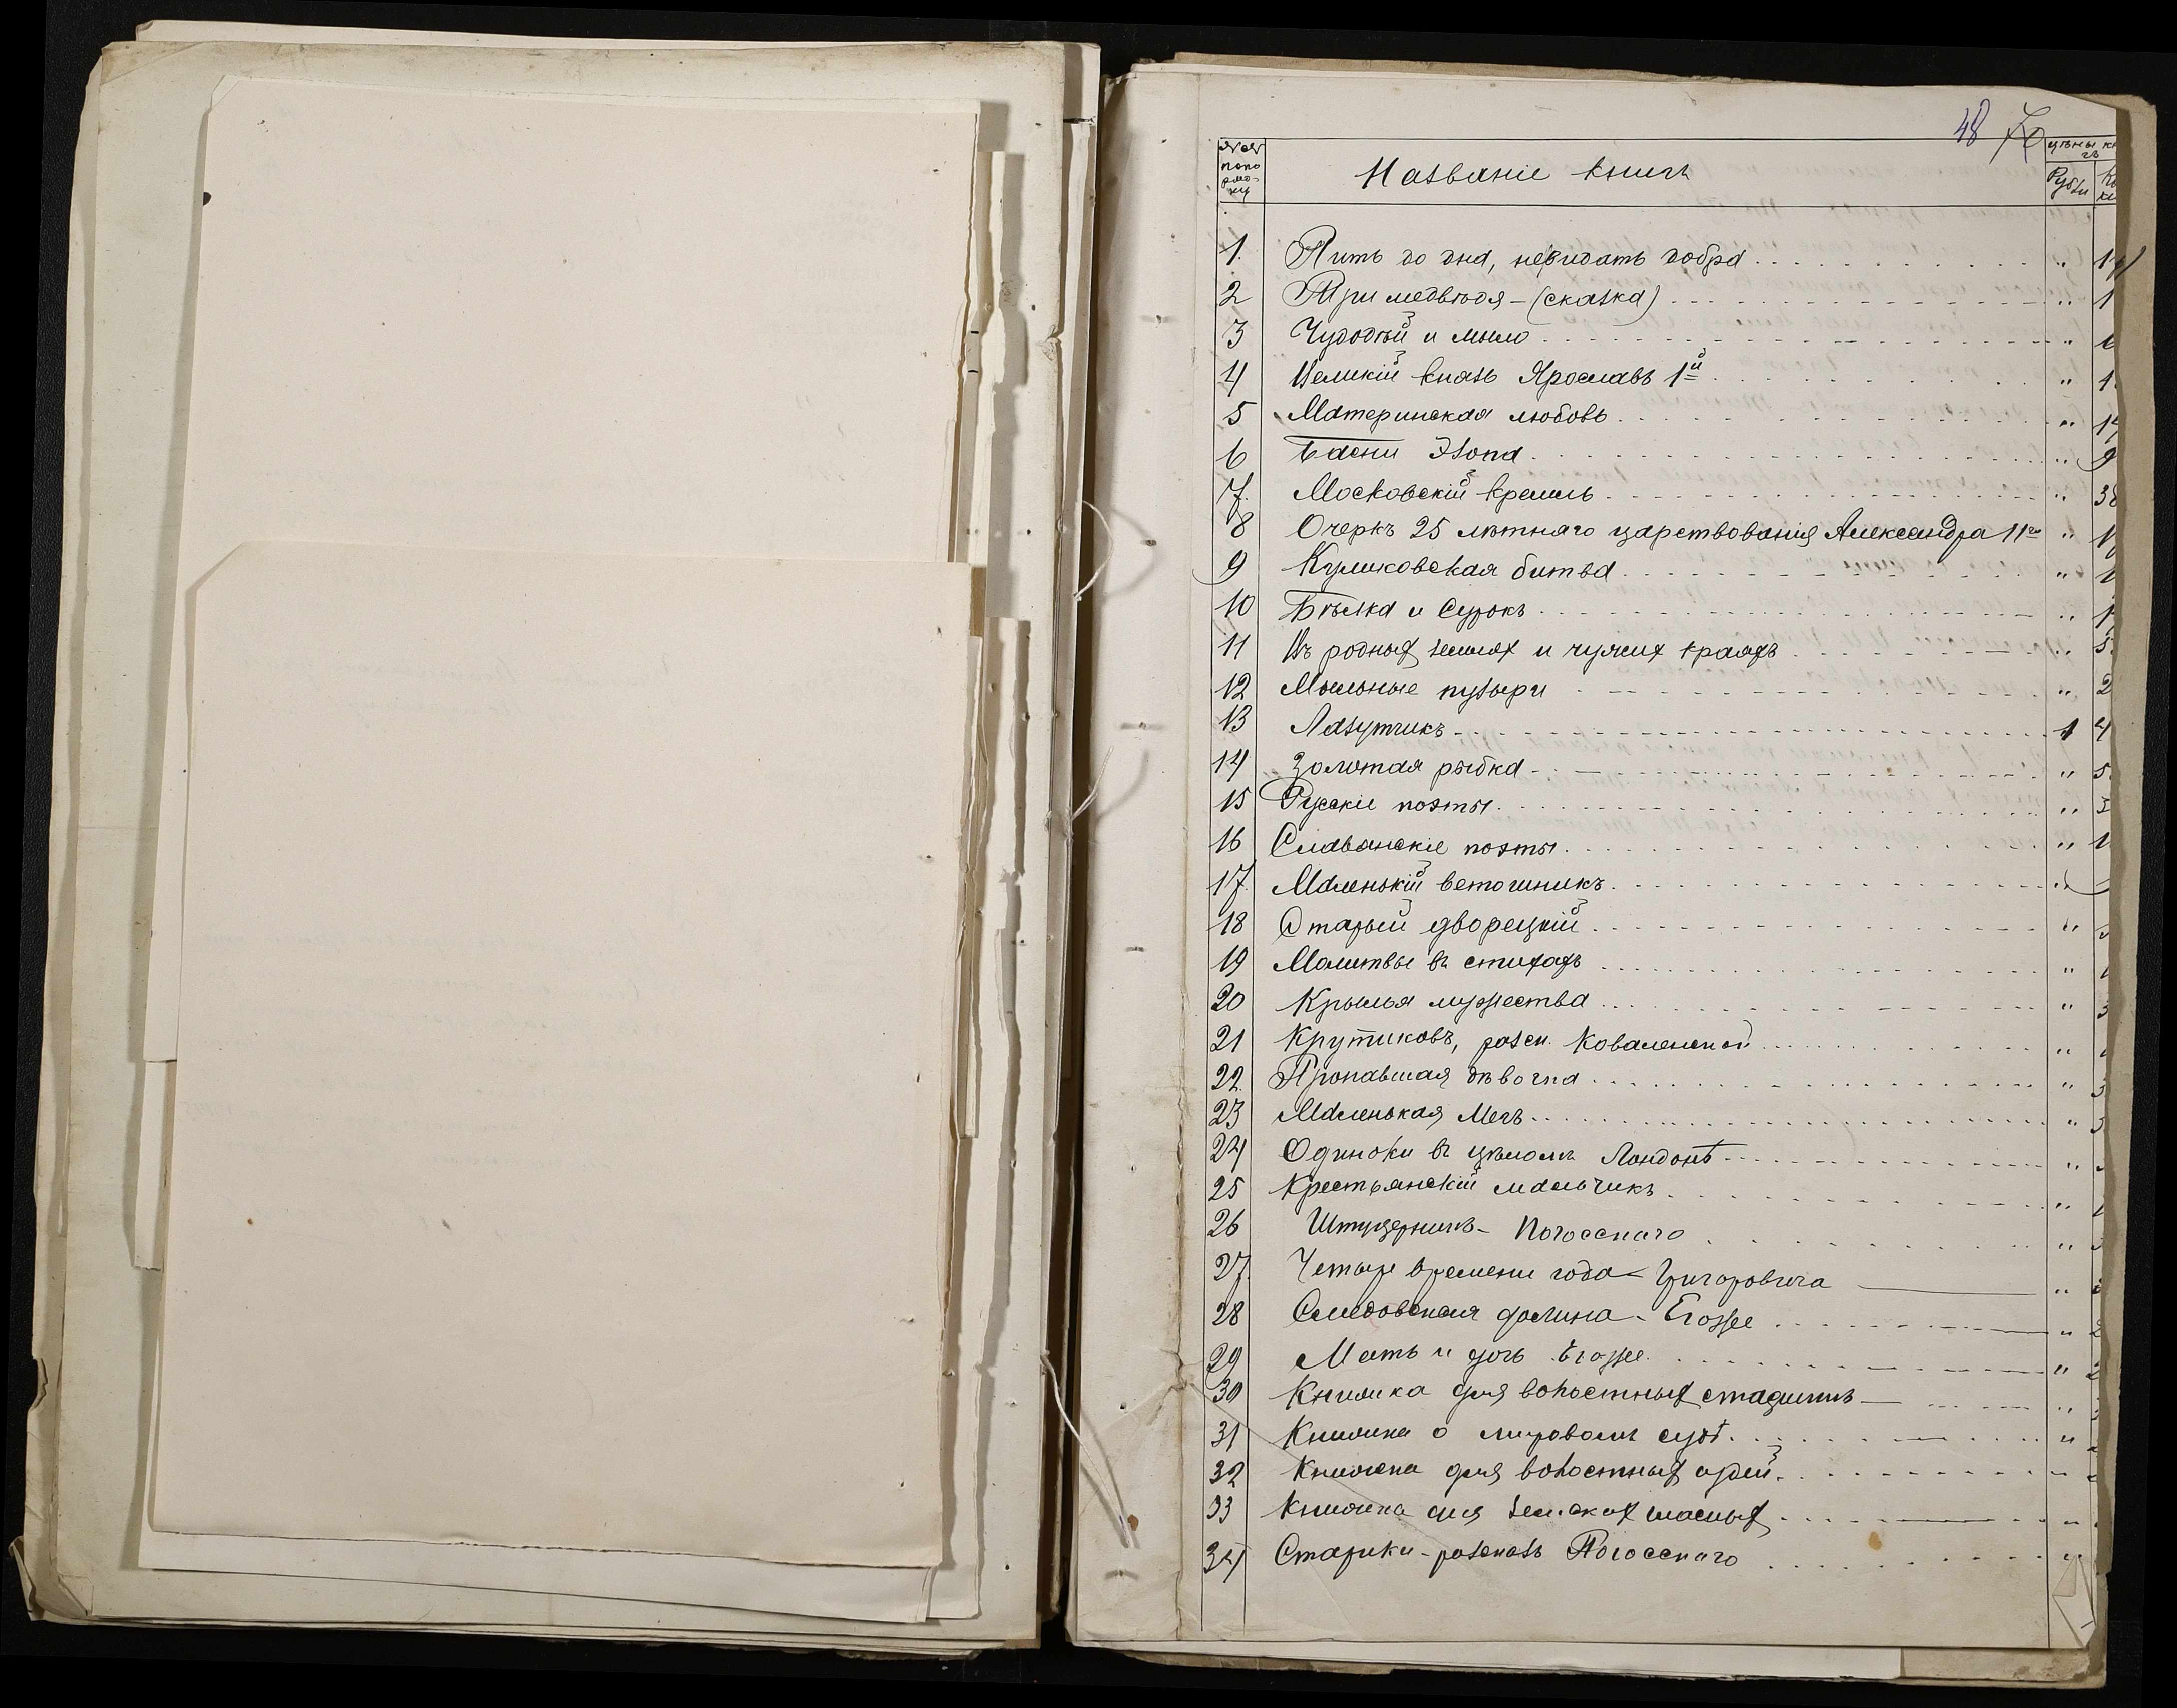 48 70
№№ по по рядку Названіе книгъ цѣны кн гъ
Рубли Ко
1. Пить до дна, невидать добра . . . " 14
2 Три медвѣдя - (сказка) . . . " 1
3 Чудодѣй и мыло . . . "
4 Великій князь Ярославъ 1й . . . " 1
5 Материнская любовь . . . " 17
6 Басни Эзопа . . . " 9
7. Московскій кремль . . . " 38
8 Очеркъ 25 лѣтняго царствованія Александра 11го " 1
9 Куликовская битва . . . " 1
10 Бѣлка и Сурокъ . . . " 1
11 Въ родных землях и чужих краяхъ . . . " 5
12 Мыльные пузыри . . . " 2
13 Лазутчикъ . . . 1 4
14 Золотая рыбка . . . " 5
15 Русскіе поэты . . . " 3
16 Славянскіе поэты . . . " 1
17. Маленькій ветошникъ . . . "
18 Старый дворецкій . . . "
19 Молитвы въ стихахъ . . . "
20 Крылья мужества . . . " 3
21 Крутиковъ, разск. Коваленской . . . "
22 Пропавшая дѣвочка . . . " 3
23 Маленькая Мегъ . . . " 3
24 Одиноки въ цѣломъ Лондонѣ . . . "
25 Крестьянскій мальчикъ . . . "
26 Штуцерникъ - Погосскаго . . . "
27. Четыре времени года - Григоровича "
28 долина - Егоже . . . " 2
29 Мать и дочь Егоже . . . " 2
30 Книжка для волостных старшинъ . . . "
31 Книжка о мировомъ судѣ . . . "
32 Книжка для волостных судей . . . "
33 Книжка для земских гласных . . . "
34 Старики - разсказъ Погосскаго . . . "